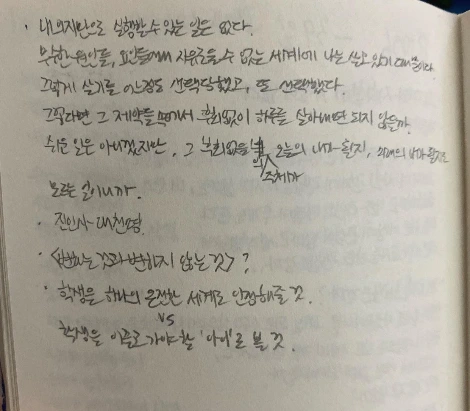 · 내 의지만으로 실행할 수 있는 일은 없다.
무수한 원인들, 요인들에서 자유로울 수 없는 세계에 나는 살고 있기 때문이다.
그렇게 살기를 어느정도 선택당했고, 또 선택했다.
그렇다면 그 제약들 속에서 후회없이 하루를 살아내면 되지 않을까.
쉬운 일은 아니겠지만, 그 후회없음의 오늘의 내가 할지, 미래의 내가 할지는
주체가
모르는 일이니까.
· 진인사 대천명.
· <변하는 것과 변하지 않는 것> ?
· 학생을 하나의 온전한 세계로 인정해줄 것.
vs
학생을 이끌고 가야 할 '아이'로 볼 것.